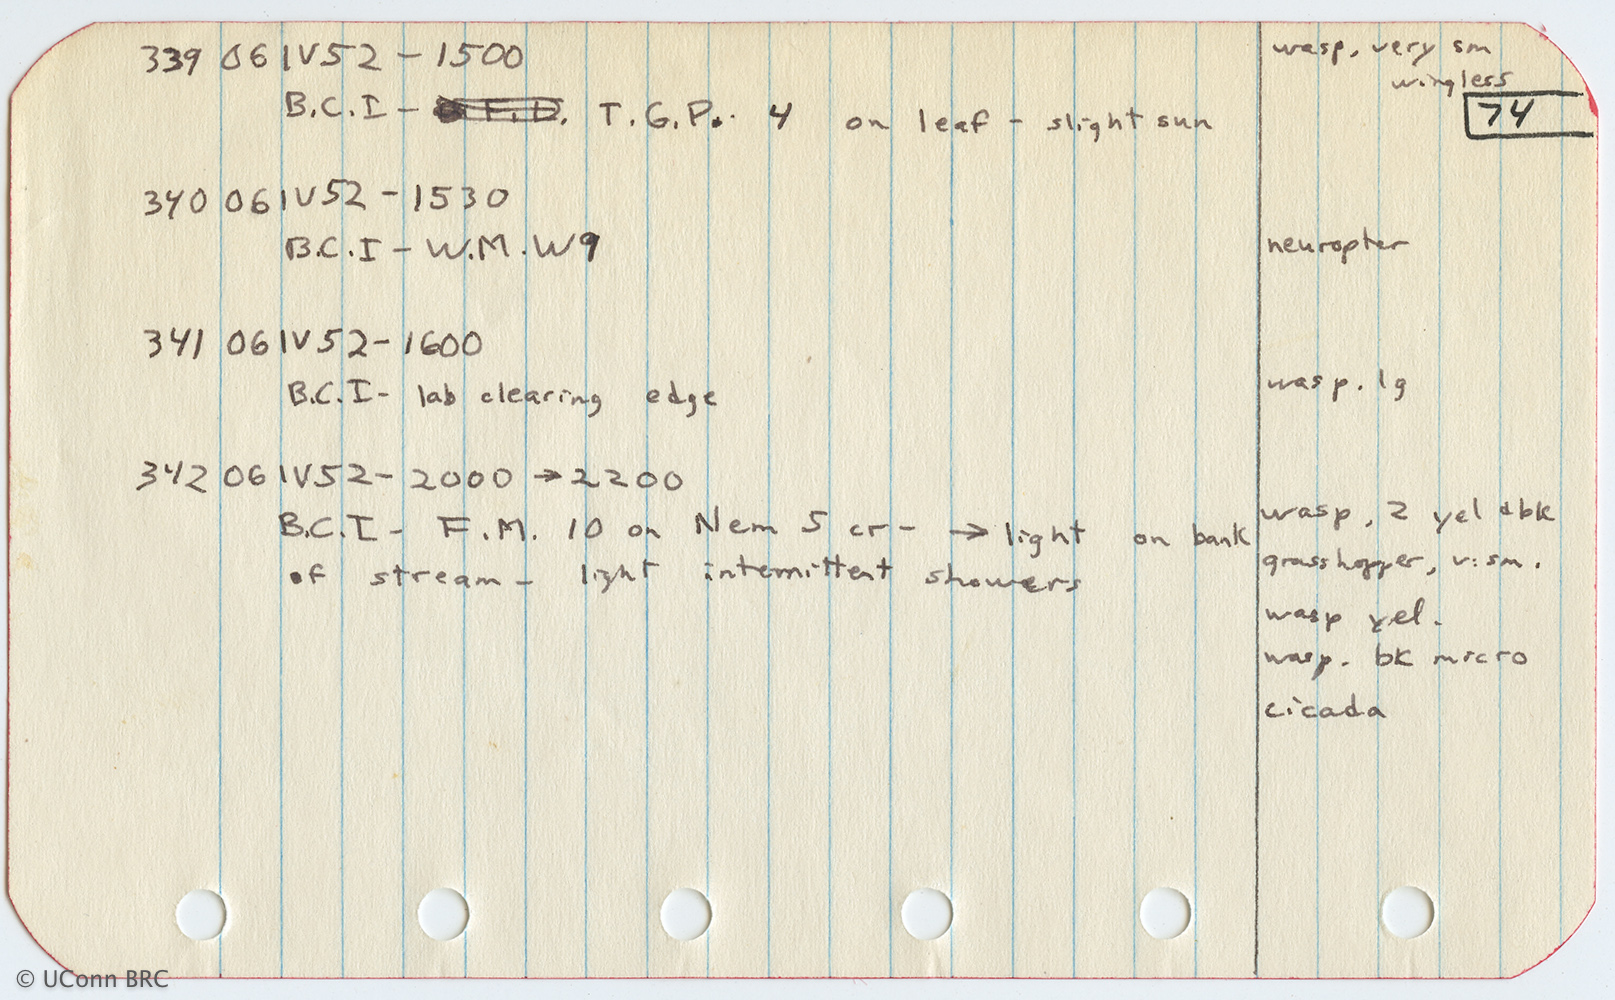 339 06IV52 - 1500 wasp, very sm
wingless
74
B.C.I - F.D. T.G.P. 4 on leaf - slight sun
340 06IV52 - 1530
B.C.I - W.M.W9 neuropter
341 06IV52 - 1600
B.C.I - lab clearing edge wasp. lg
342 06IV52 - 2000 → 2200
B.C.I - F.M. 10 on Nem 5 cr - → light on bank wasp, 2 yel & bk
of stream - light intemittent showers grasshopper, v. sm.
wasp yel.
wasp. bk micro
cicada
© UConn BRC